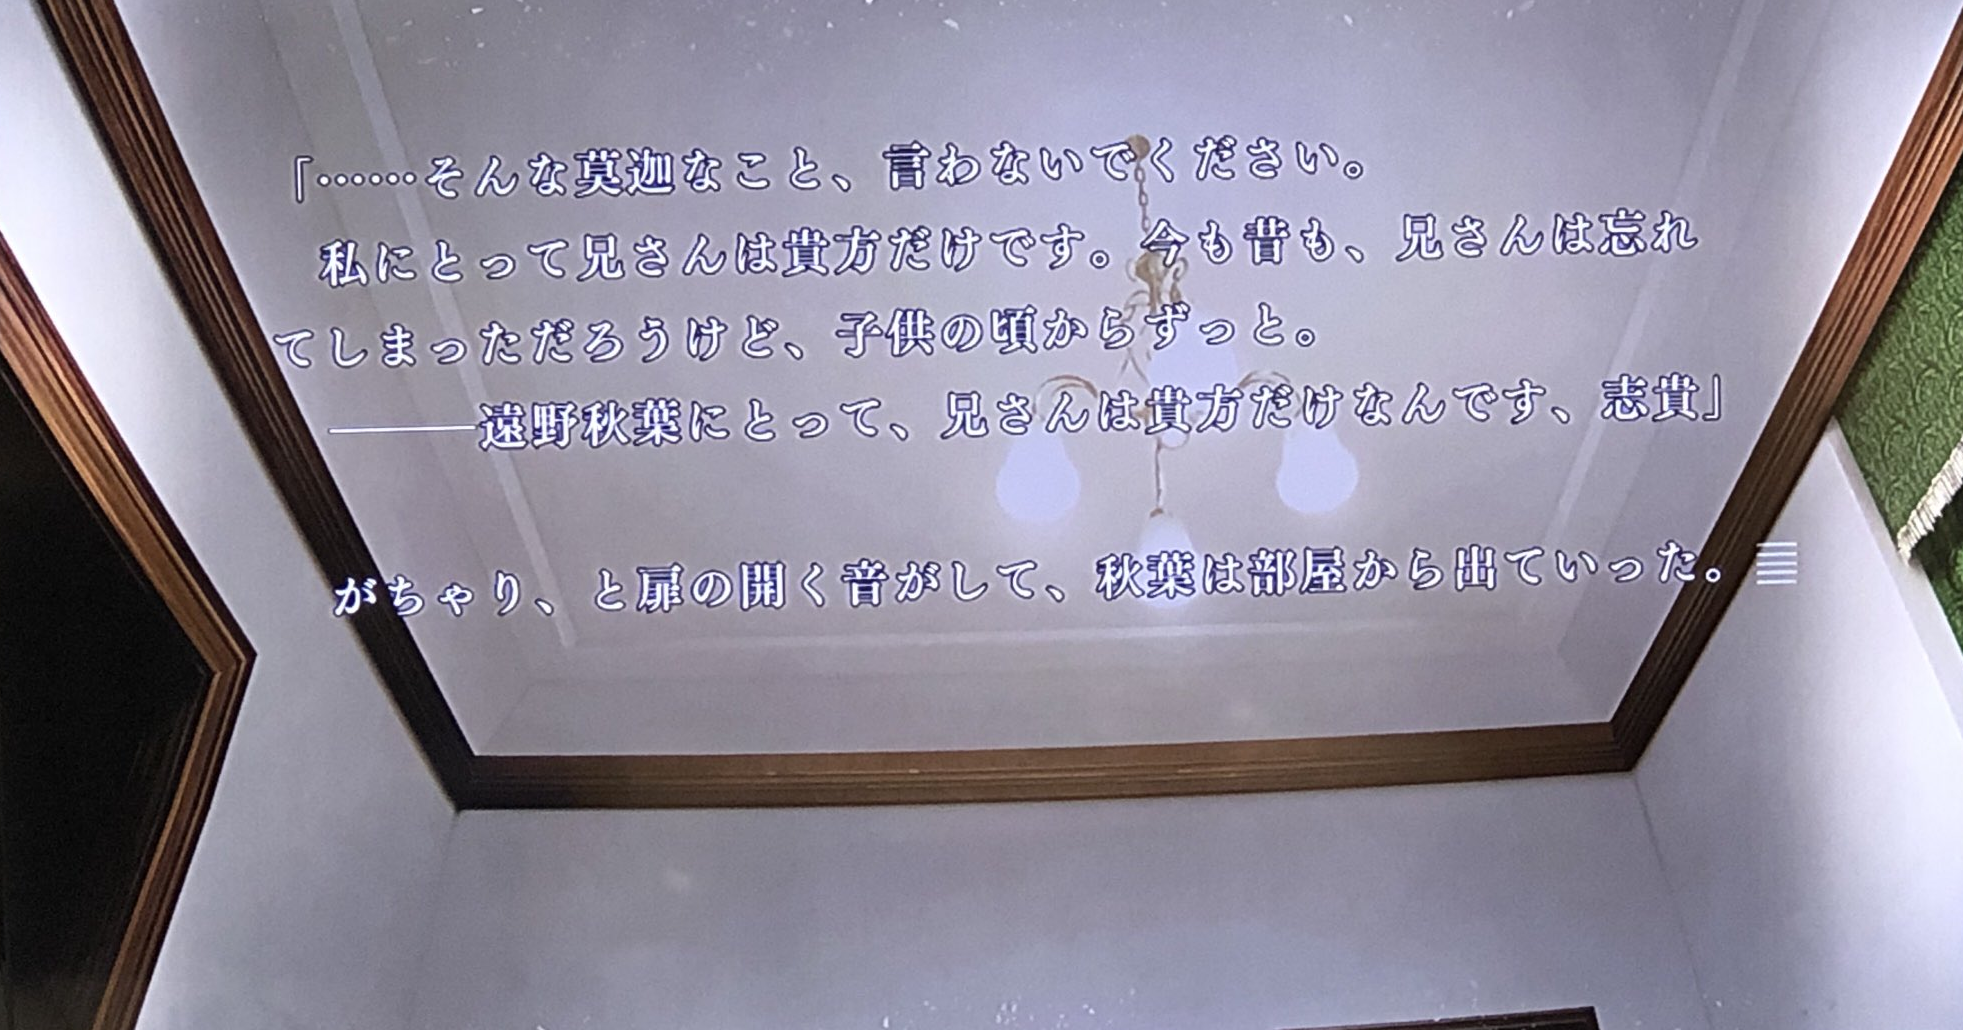 「……そんな莫迦なこと、言わないでください。
私にとって兄さんは貴方だけです。今も昔も、兄さんは忘れ
てしまっただろうけど、子供の頃からずっと。
―――遠野秋葉にとって、兄さんは貴方だけなんです、志貴」
がちゃり、と扉の開く音がして、秋葉は部屋から出ていった。